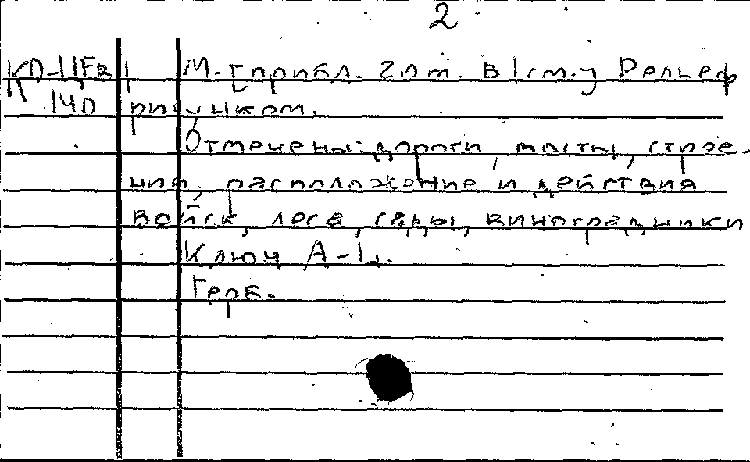 2
М. [прибл. 2 лт. в 1 см.] Рельеф
140 рисунком.
Отмечены: дороги, мосты, строе-
ния, расположение и действия
войск, леса, сады, виноградники
Ключ А-Ц.
Герб.